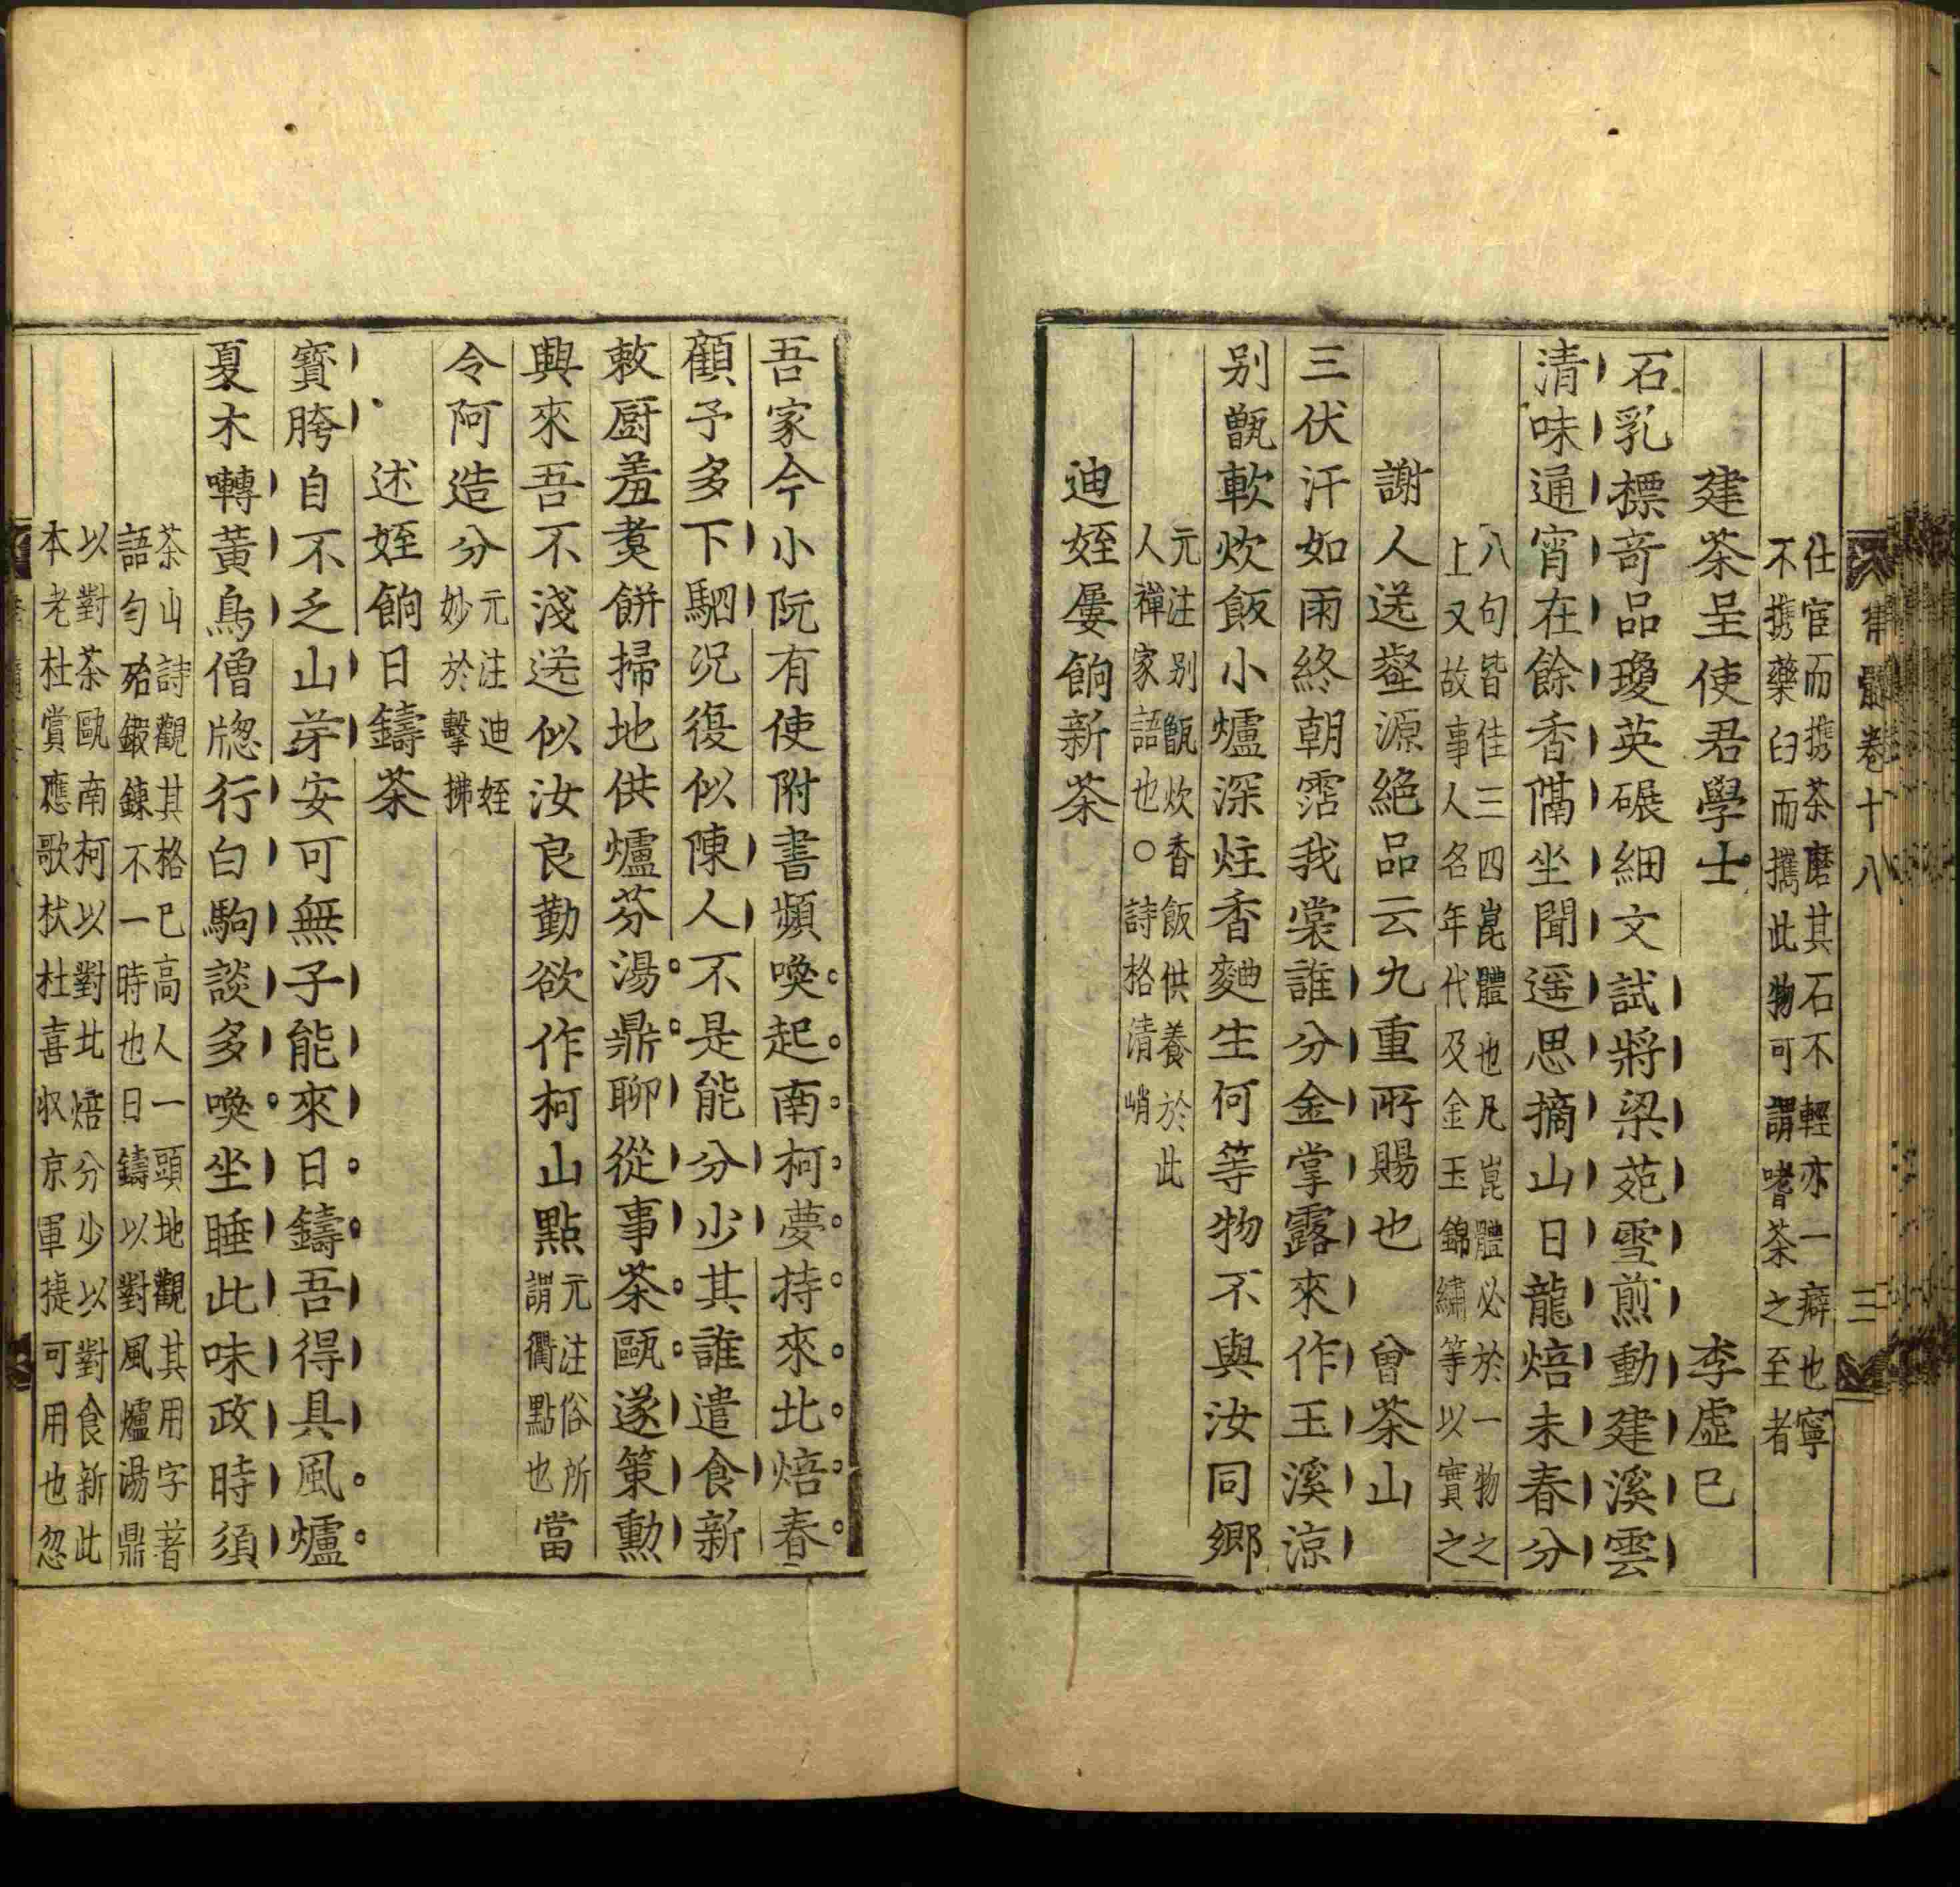 律髓卷十八 三
仕宦而携茶磨其石不輕亦一癖也寧
不携藥臼而攜此物可謂嗜茶之至者
建茶呈使君學士 李虛已
石乳標奇品瓊英碾細文試將梁苑雪煎動建溪雲
清味通宵在餘香隔坐聞遥思摘山日龍焙未春分
八句皆佳三四崑體也凡崑體必於一物之
上又故事人名年代及金玉錦繡等以實之
謝人送壑源絶品云九重所賜也 曾茶山
三伏汗如雨終朝霑我裳誰分金掌露來作玉溪涼
别甑軟炊飯小爐深炷香麴生何等物不與汝同鄉
元注别甑炊香飯供養於此
人禪家語也○詩格清峭
迪姪屢餉新茶
吾家今小阮有使附書頻喚起南柯夢持來北焙春
顧予多下駟況復似陳人不是能分少其誰遣食新
敕厨羞煑餅掃地供爐芬湯鼎聊從事茶甌遂策勳
興來吾不淺送似汝良勤欲作柯山點元注俗所謂衢點也當
令阿造分元注迪姪妙於擊拂
述姪餉日鑄茶
寳胯自不乏山芽安可無子能來日鑄吾得具風爐
夏木囀黃鳥僧牕行白駒談多喚坐睡此味政時須
茶山詩觀其格已高人一頭地觀其用字著
語勻殆鍛鍊不一時也日鑄以對風爐湯鼎
以對茶甌南柯以對北焙分少以對食新此
本老杜賞應歌杕杜喜収京軍捷可用用也忽